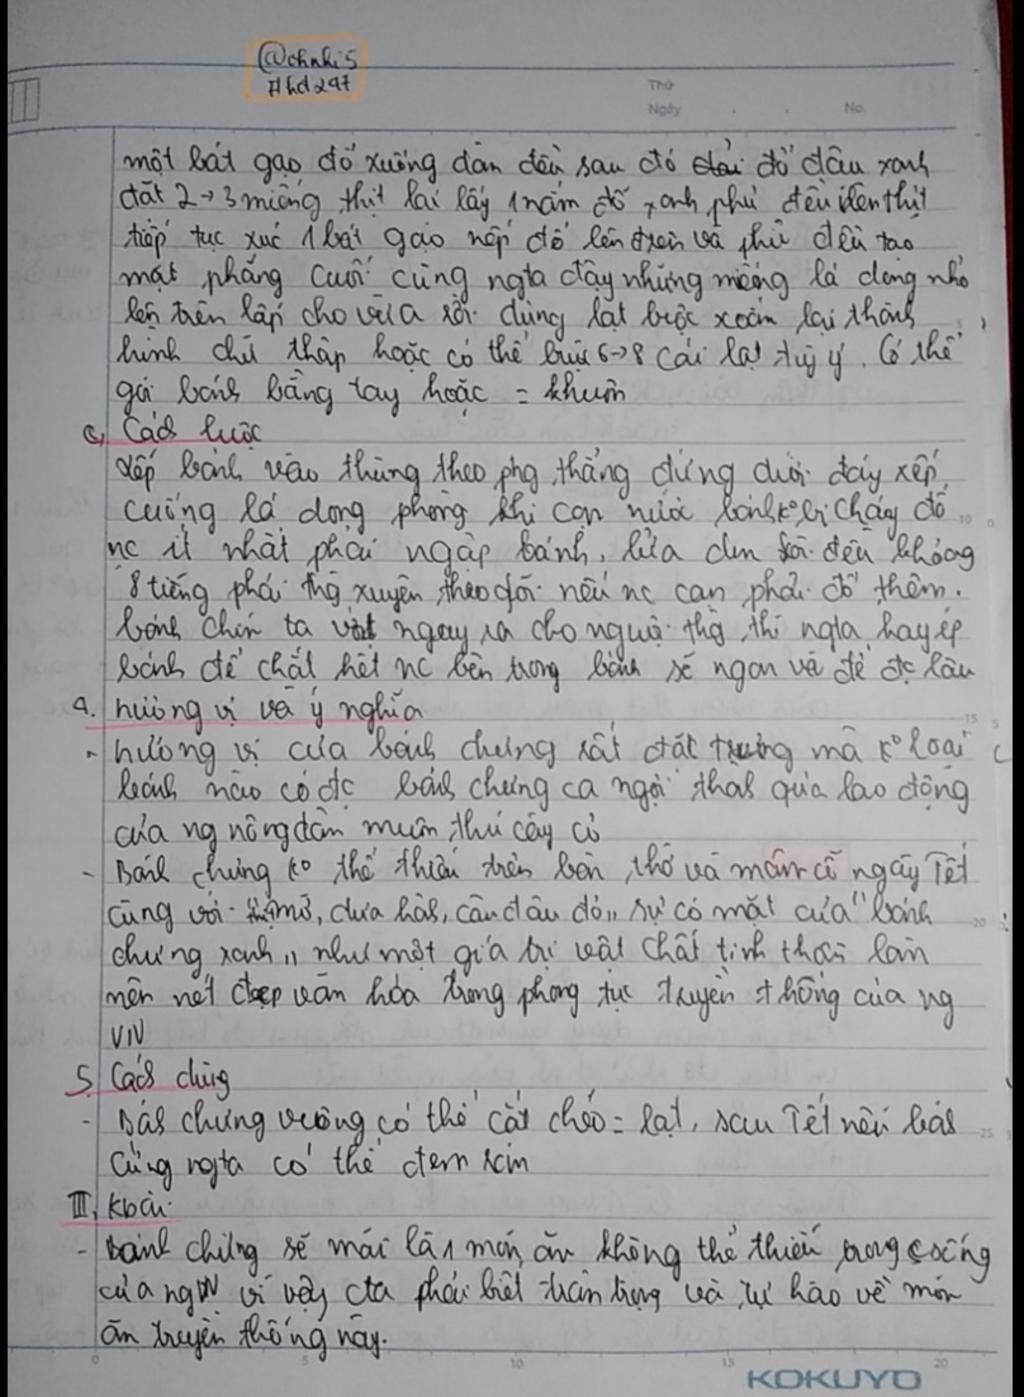 @chnhi5
#hd247
Thứ
Ngày . . No.
một bát gạo đổ xuống dàn đều sau đó đổ đậu xanh
đặt 2→3 miếng thịt lại lấy 1 nắm đỗ xanh phủ đều lên thịt
tiếp tục xúc 1 bát gạo nếp đổ lên trên và phủ đều tạo
mặt phẳng cuối cùng ngta đậy những miếng lá dong nhỏ
lên trên lấp cho vừa rồi dùng lạt buộc xoắn lại thành
hình chữ thập hoặc có thể buộc 6→8 cái lạt tuỳ ý. Có thể
gói bánh bằng tay hoặc = khuôn
c, Cách luộc
Xếp bánh vào thùng theo phg thẳng đứng dưới đáy xếp
cuống lá dong phòng khi cạn nước bánh k° bị cháy đổ
nc ít nhất phải ngập bánh, lửa đun sôi đều khoảng
8 tiếng phải thg xuyên theo dõi nếu nc cạn phải đổ thêm.
bánh chín ta vớt ngay ra cho nguội thg thì ngta hay ép
bánh để chắt hết nc bên trong bánh sẽ ngon và để đc lâu
4. hương vị và ý nghĩa
- hương vị của bánh chưng rất đặt trưng mà k° loại
bánh nào có đc bánh chưng ca ngợi thành quả lao động
của ng nông dân muôn thú cây cỏ
- Bánh chưng k° thể thiếu trên bàn thờ và mâm cỗ ngày Tết
cùng với thịt mỡ, dưa hành, câu đối đỏ,, sự có mặt của "bánh
chưng xanh,, như một giá trị vật chất tinh thần làm
nên nét đẹp văn hóa trong phong tục truyền thống của ng
VN
5. Cách dùng
- Bánh chưng vuông có thể cắt chéo = lạt, sau Tết nếu bánh
cứng ngta có thể đem rán
III, Kbài
- Bánh chưng sẽ mãi là 1 món ăn không thể thiếu trong csống
của ng VN vì vậy cta phải biết trân trọng và tự hào về món
ăn truyền thống này.
0 5 10 15 20
KOKUYO